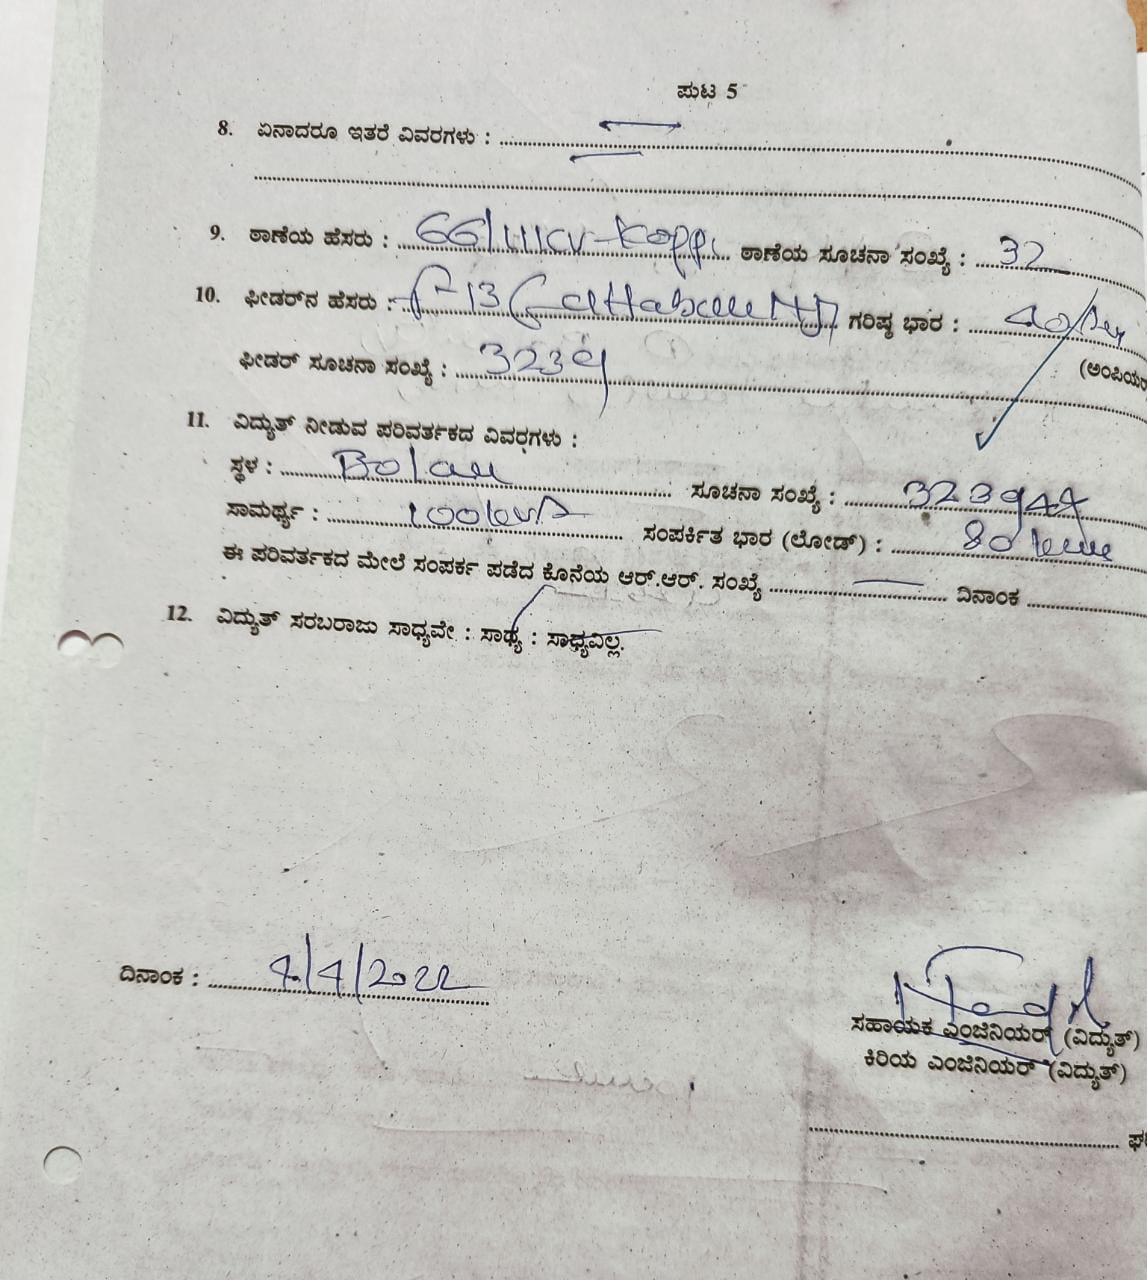 ಪುಟ 5
8. ಏನಾದರೂ ಇತರೆ ವಿವರಗಳು :
9. ಠಾಣೆಯ ಹೆಸರು : 66/11KV-Koppa ಠಾಣೆಯ ಸೂಚನಾ ಸಂಖ್ಯೆ : 32
10. ಫೀಡರ್‌ನ ಹೆಸರು : F-13 ಗರಿಷ್ಠ ಭಾರ :
(ಅಂಪಿಯರ
ಫೀಡರ್ ಸೂಚನಾ ಸಂಖ್ಯೆ : 3239
11. ವಿದ್ಯುತ್ ನೀಡುವ ಪರಿವರ್ತಕದ ವಿವರಗಳು :
ಸ್ಥಳ : ಸೂಚನಾ ಸಂಖ್ಯೆ :
ಸಾಮರ್ಥ್ಯ : 100kVA ಸಂಪರ್ಕಿತ ಭಾರ (ಲೋಡ್) : 80
ಈ ಪರಿವರ್ತಕದ ಮೇಲೆ ಸಂಪರ್ಕ ಪಡೆದ ಕೊನೆಯ ಆರ್.ಆರ್. ಸಂಖ್ಯೆ ದಿನಾಂಕ
12. ವಿದ್ಯುತ್ ಸರಬರಾಜು ಸಾಧ್ಯವೇ : ಸಾಧ್ಯ : ಸಾಧ್ಯವಿಲ್ಲ.
ದಿನಾಂಕ : 4/4/2022
ಸಹಾಯಕ ಎಂಜಿನಿಯರ್ (ವಿದ್ಯುತ್)
ಕಿರಿಯ ಎಂಜಿನಿಯರ್ (ವಿದ್ಯುತ್)